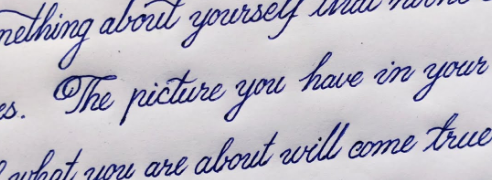 about yourself that
The picture you have in your
what you are about will come true